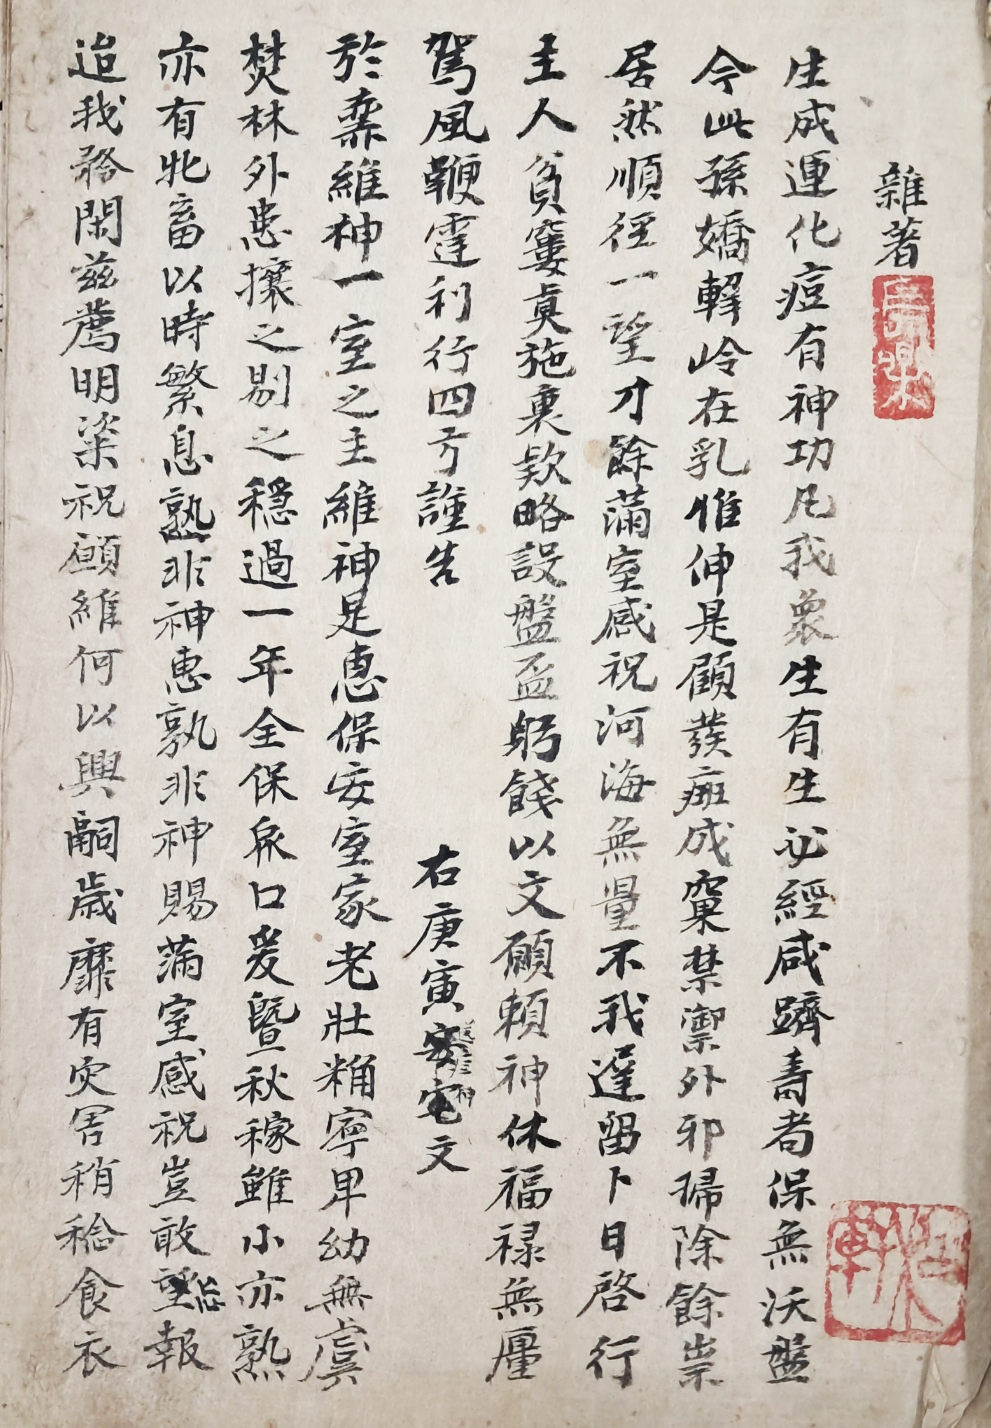 雜著
生成運化痘有神功凡我衆生有生必經咸躋壽者保無沃盤
今此孫嬌轝岭在乳惟伸是顧發痲成窠禁禦外邪掃除餘祟
居然順徑一望才餘滿室感祝河海無量不我遅留卜日啓行
主人貧窶莫施裹欵略設盤盃躬餞以文願賴神休福祿無厘
駕風鞭霆利行四方謹告
右庚寅安宅文
於 維神一室之主維神是惠保安室家老壯 寧卑幼無虞
焚林外患攘之剔之穩過一年全保 口爰暨秋稼雖小亦熟
亦有牝畜以時繁息孰非神惠孰非神賜滿室感祝豈敢忘報
迨我務閑茲薦明粢祝顧維何以興嗣歲靡有灾害稍稔食衣